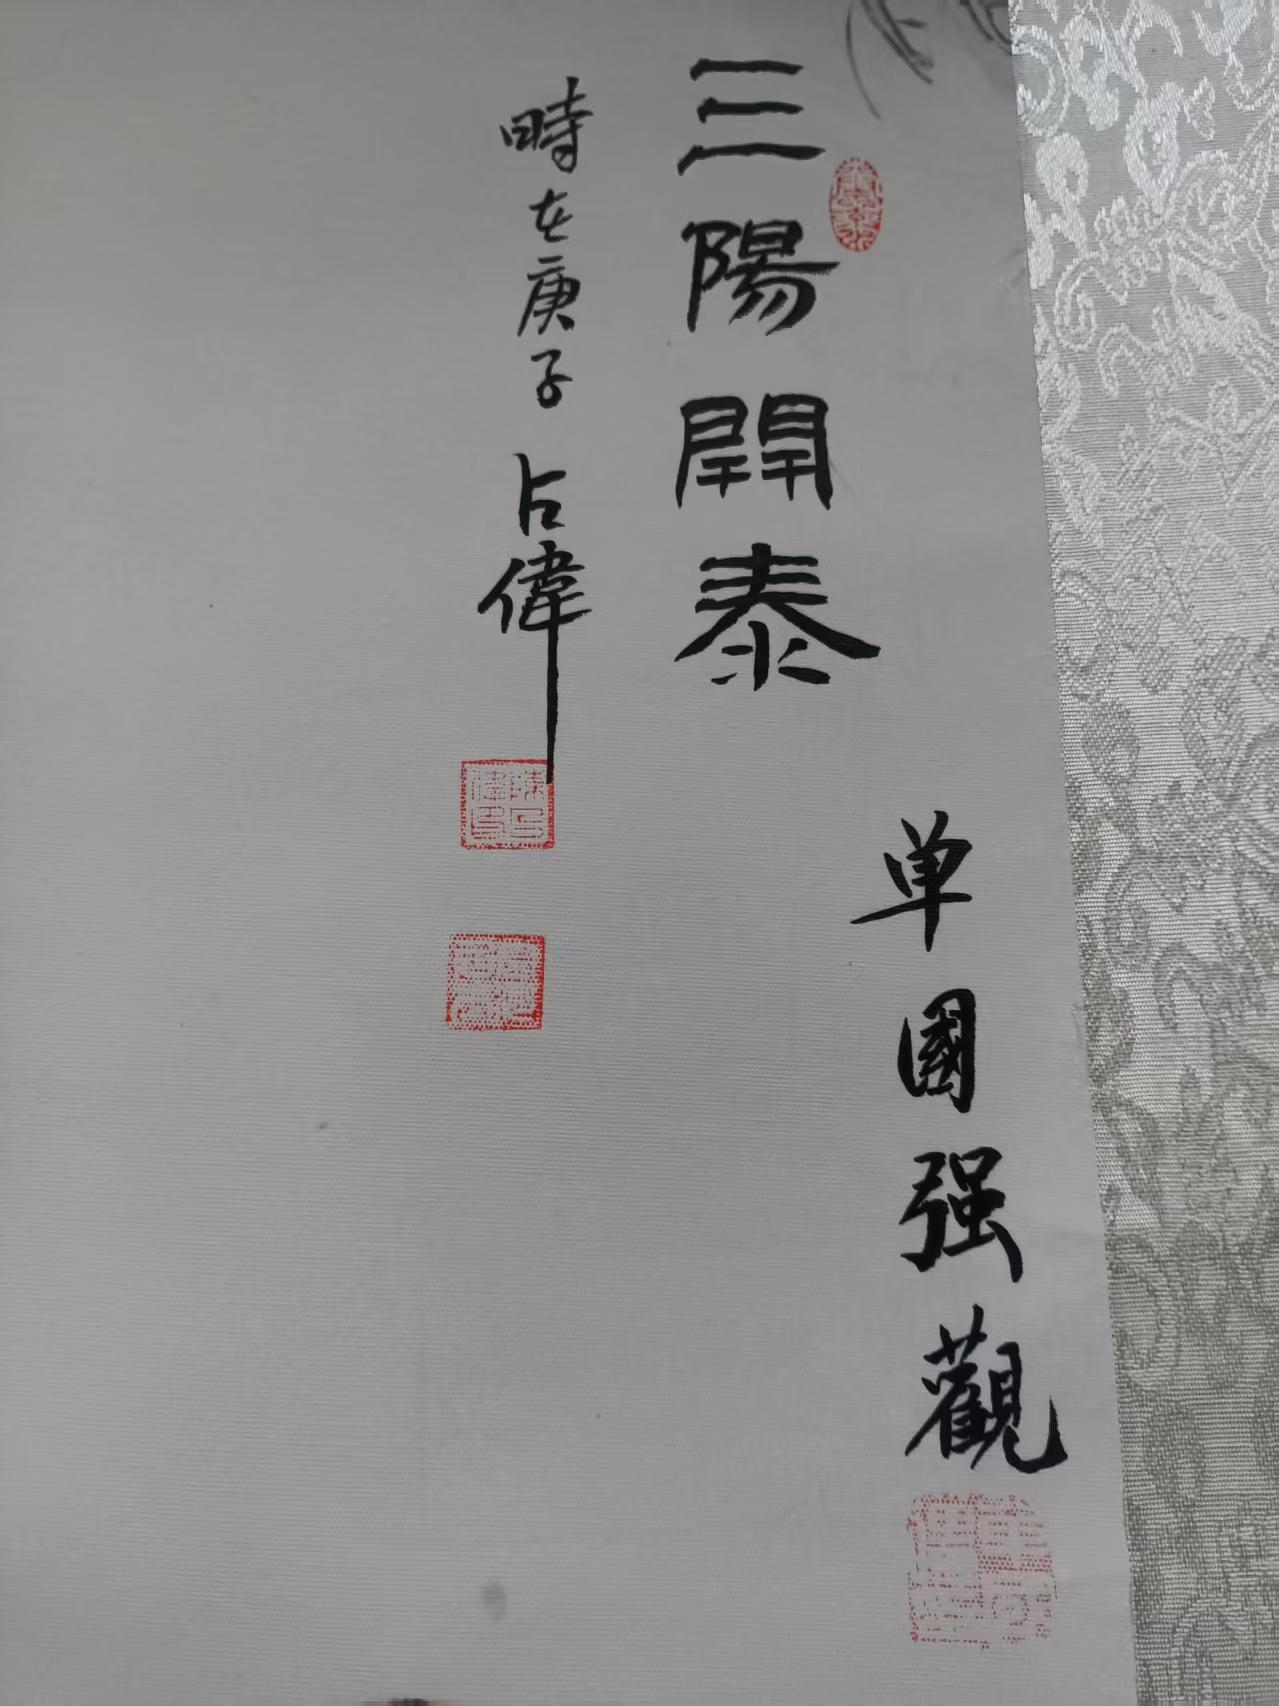 三陽開泰
時在庚子 占偉
单國强觀